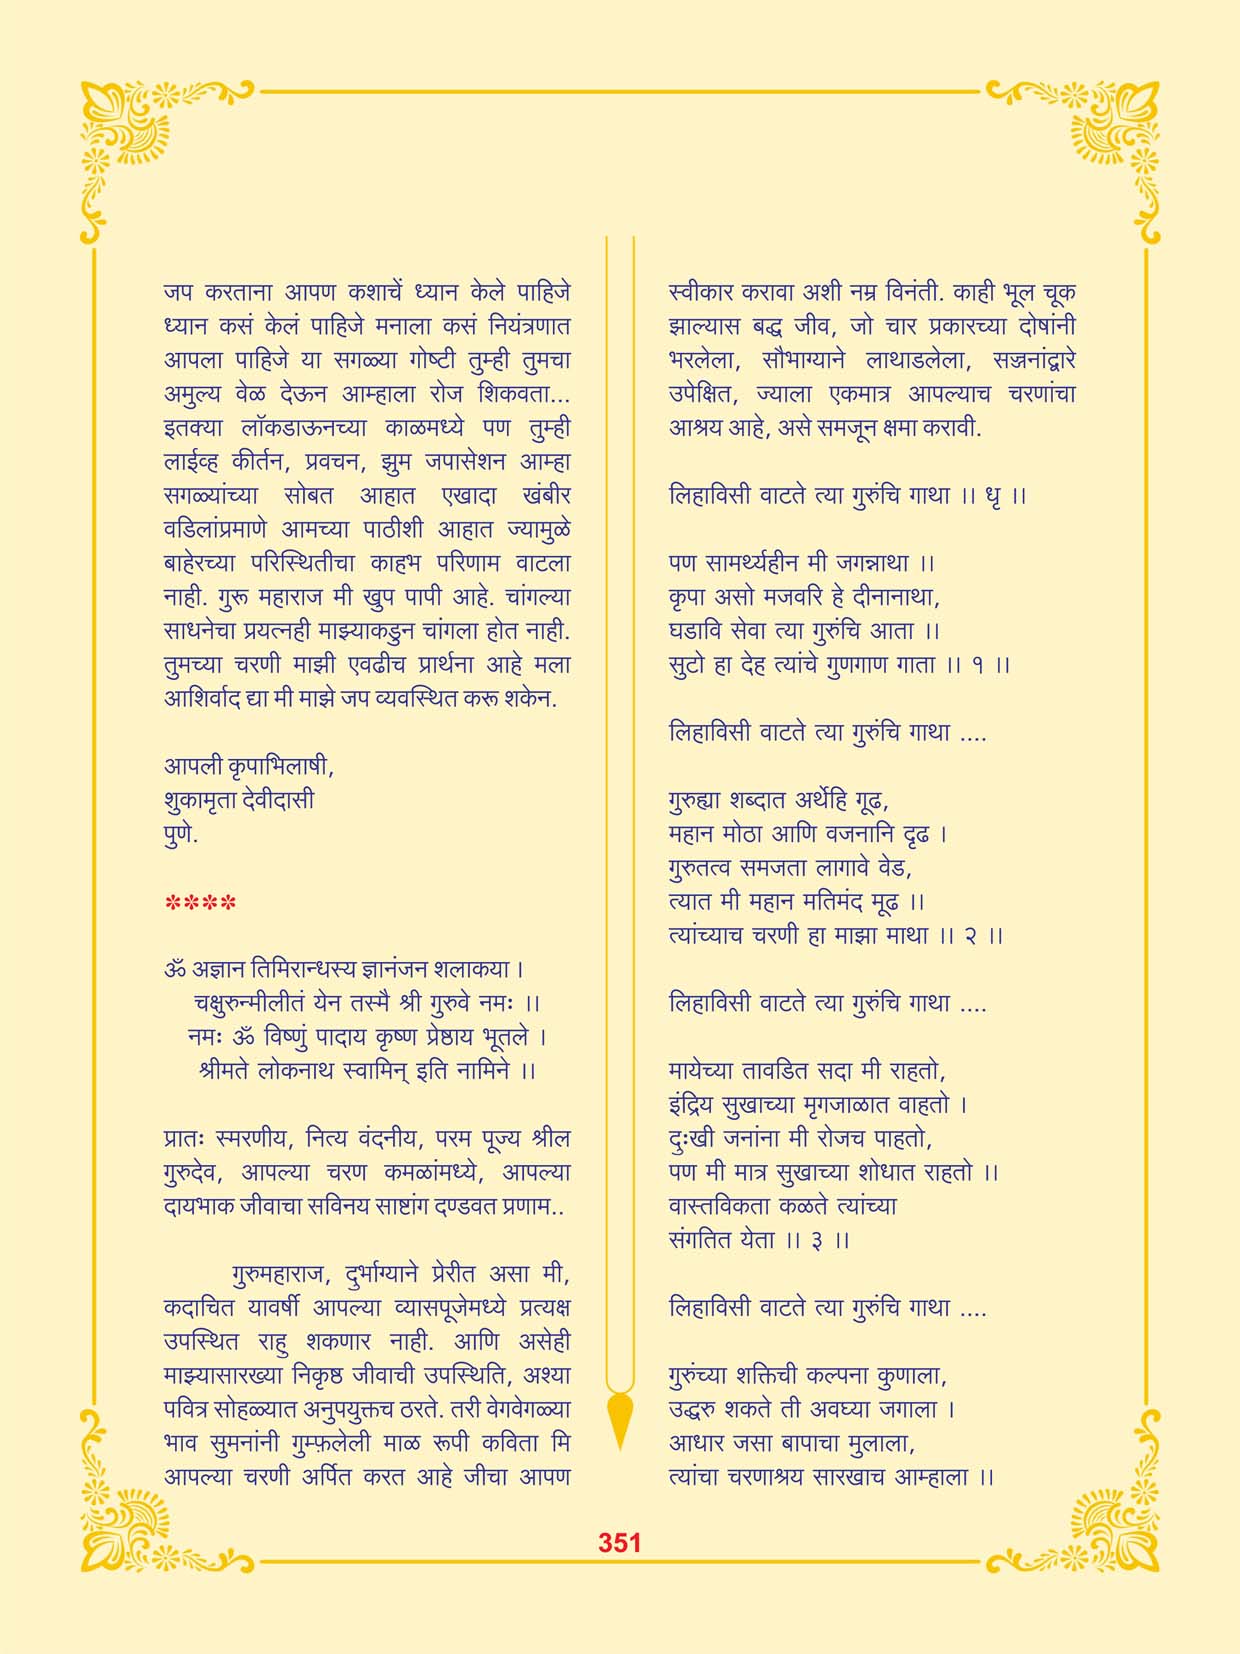 जप करताना आपण कशाचें ध्यान केले पाहिजे
ध्यान कसं केलं पाहिजे मनाला कसं नियंत्रणात
आपला पाहिजे या सगळ्या गोष्टी तुम्ही तुमचा
अमुल्य वेळ देऊन आम्हाला रोज शिकवता...
इतक्या लॉकडाऊनच्या काळमध्ये पण तुम्ही
लाईव्ह कीर्तन, प्रवचन, झुम जपासेशन आम्हा
सगळ्यांच्या सोबत आहात एखादा खंबीर
वडिलांप्रमाणे आमच्या पाठीशी आहात ज्यामुळे
बाहेरच्या परिस्थितीचा काहभ परिणाम वाटला
नाही. गुरू महाराज मी खुप पापी आहे. चांगल्या
साधनेचा प्रयत्नही माझ्याकडुन चांगला होत नाही.
तुमच्या चरणी माझी एवढीच प्रार्थना आहे मला
आशिर्वाद द्या मी माझे जप व्यवस्थित करू शकेन.
आपली कृपाभिलाषी,
शुकामृता देवीदासी
पुणे.
****
ॐ अज्ञान तिमिरान्धस्य ज्ञानंजन शलाकया ।
चक्षुरुन्मीलीतं येन तस्मै श्री गुरुवे नमः ।।
नमः ॐ विष्णुं पादाय कृष्ण प्रेष्ठाय भूतले ।
श्रीमते लोकनाथ स्वामिन् इति नामिने ।।
प्रातः स्मरणीय, नित्य वंदनीय, परम पूज्य श्रील
गुरुदेव, आपल्या चरण कमळांमध्ये, आपल्या
दायभाक जीवाचा सविनय साष्टांग दण्डवत प्रणाम..
गुरुमहाराज, दुर्भाग्याने प्रेरीत असा मी,
कदाचित यावर्षी आपल्या व्यासपूजेमध्ये प्रत्यक्ष
उपस्थित राहु शकणार नाही. आणि असेही
माझ्यासारख्या निकृष्ठ जीवाची उपस्थिति, अश्या
पवित्र सोहळ्यात अनुपयुक्तच ठरते. तरी वेगवेगळ्या
भाव सुमनांनी गुम्फ़लेली माळ रूपी कविता मि
आपल्या चरणी अर्पित करत आहे जीचा आपण
स्वीकार करावा अशी नम्र विनंती. काही भूल चूक
झाल्यास बद्ध जीव, जो चार प्रकारच्या दोषांनी
भरलेला, सौभाग्याने लाथाडलेला, सज्जनांद्वारे
उपेक्षित, ज्याला एकमात्र आपल्याच चरणांचा
आश्रय आहे, असे समजून क्षमा करावी.
लिहाविसी वाटते त्या गुरुंचि गाथा ।। धृ ।।
पण सामर्थ्यहीन मी जगन्नाथा ।।
कृपा असो मजवरि हे दीनानाथा,
घडावि सेवा त्या गुरुंचि आता ।।
सुटो हा देह त्यांचे गुणगाण गाता ।। १ ।।
लिहाविसी वाटते त्या गुरुंचि गाथा ....
गुरुह्या शब्दात अर्थेहि गूढ,
महान मोठा आणि वजनानि दृढ ।
गुरुतत्व समजता लागावे वेड,
त्यात मी महान मतिमंद मूढ ।।
त्यांच्याच चरणी हा माझा माथा ।। २ ।।
लिहाविसी वाटते त्या गुरुंचि गाथा ....
मायेच्या तावडित सदा मी राहतो,
इंद्रिय सुखाच्या मृगजाळात वाहतो ।
दुःखी जनांना मी रोजच पाहतो,
पण मी मात्र सुखाच्या शोधात राहतो ।।
वास्तविकता कळते त्यांच्या
संगतित येता ।। ३ ।।
लिहाविसी वाटते त्या गुरुंचि गाथा ....
गुरुंच्या शक्तिची कल्पना कुणाला,
उद्धरु शकते ती अवघ्या जगाला ।
आधार जसा बापाचा मुलाला,
त्यांचा चरणाश्रय सारखाच आम्हाला ।।
351